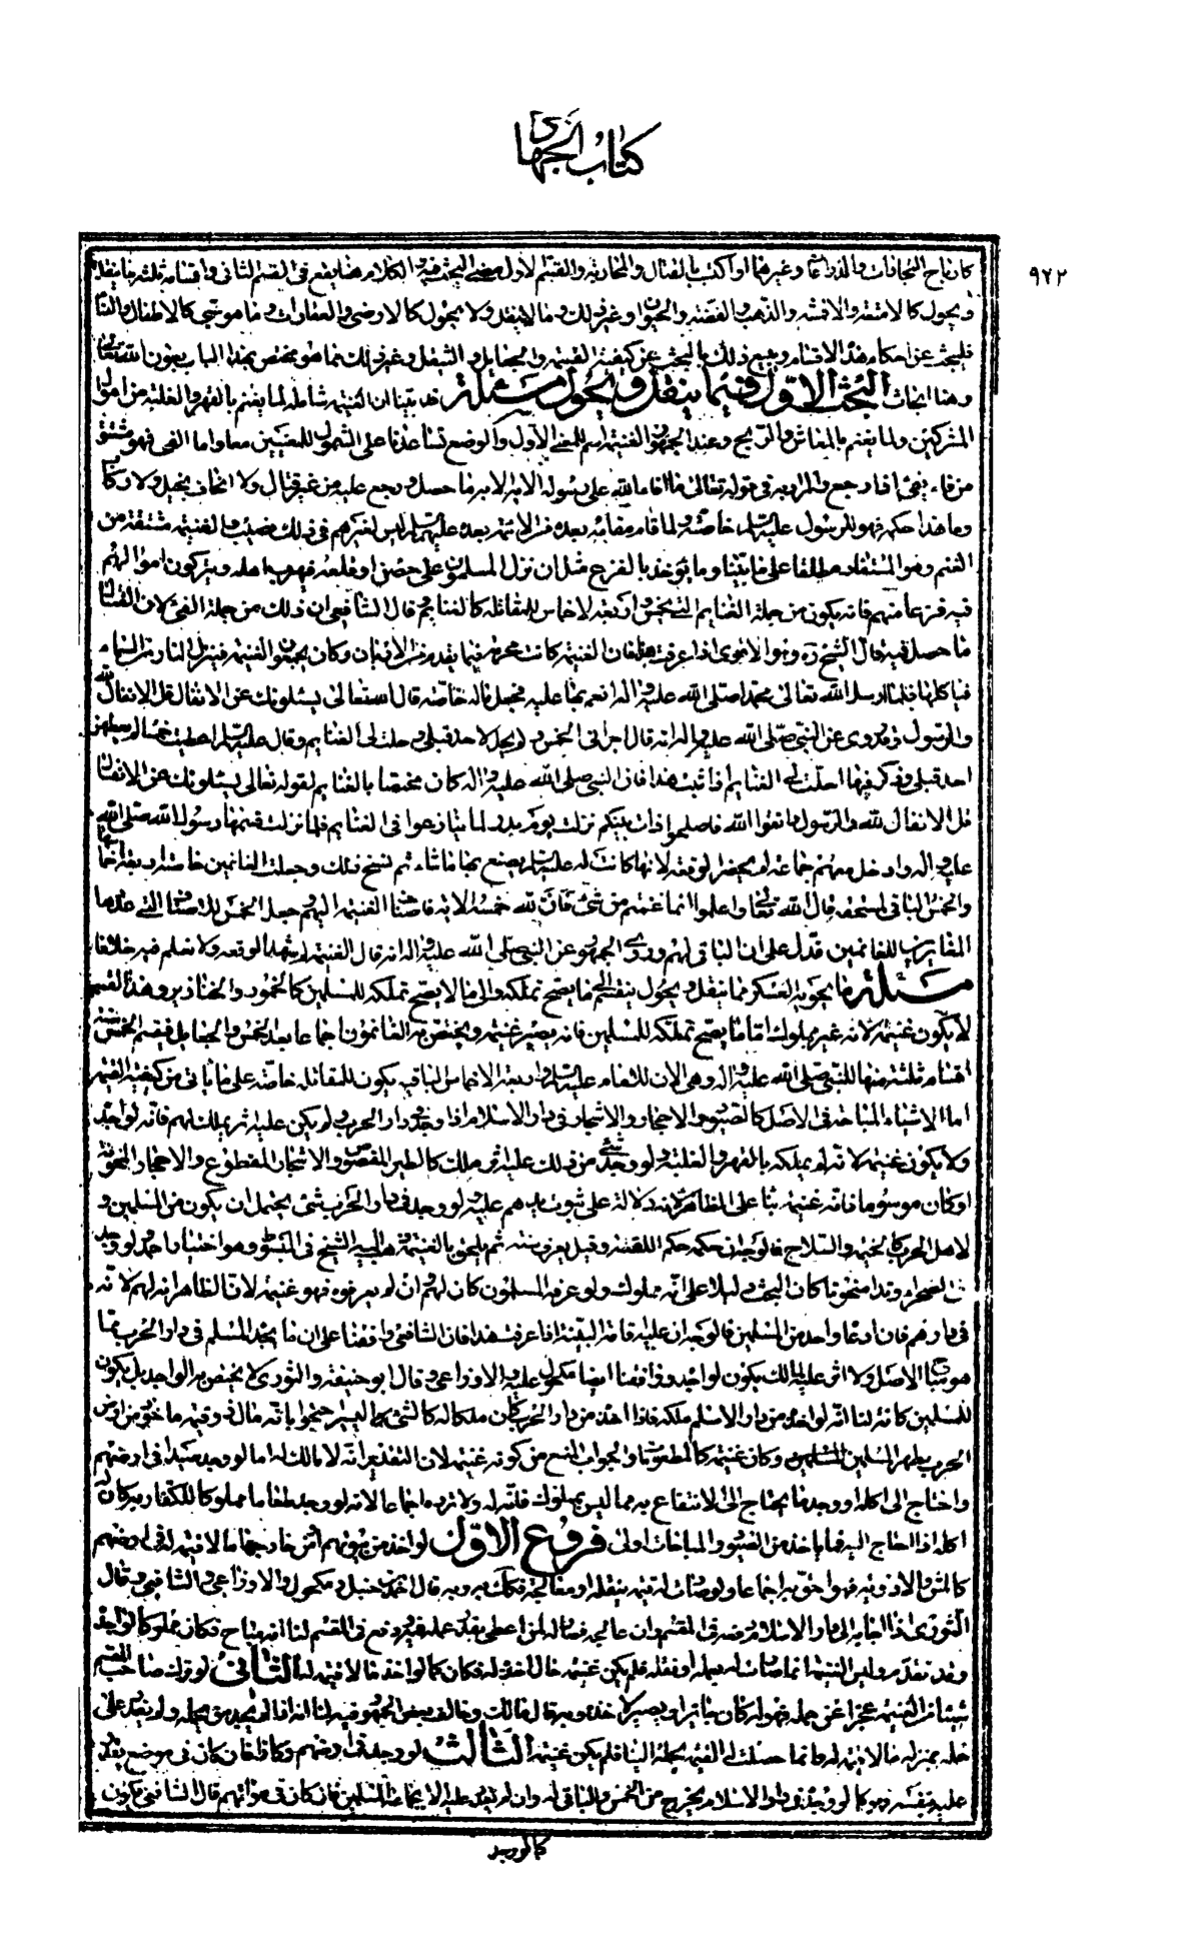 كتاب الجهاد
٩٢٢
كارباح التجارات والزراعات وغيرهما او اكتسب بالقتال والمحاربة والقسم الاول مضى البحث فيه والكلام هنا يقع في القسم الثانى واقسامه ثلثة ما ينقل
ويحول كالامتعة والاقمشة والذهب والفضة والحيوان وغير ذلك وما لا ينقل ولا يحول كالارضى والعقارات وما هو سبى كالاطفال والنساء
فلبحث عن احكام هذه الاقسام وجميع ذلك بالبحث عن كيفية القسمة والجعايل والتنفيل وغير ذلك مما هو مختص بهذا الباب بعون الله تعالى
وهنا ابحاث البحث الاول فيما ينقل ويحول مسئلة قد بينا ان الغنيمة شاملة لما يغنم بالقهر والغلبة من اموال
المشركين ولما يغنم بالمعاش والربح وعند الجمهور الغنيمة اسم للمعنى الاول والوضع يساعدنا على الشمول للمعنيين معا واما الفئ فهو مشتق
من فاء يفئ اذا رجع والمراد به في قوله تعالى ما افاء الله على رسوله الاية الاية ما حصل ورجع عليه من غير قتال ولا ايجاف بخيل ولا ركاب
وما هذا حكمه فهو للرسول عليه السلام خاصة ولمن قام مقامه بعده من الائمة بعده عليهم السلام ليس لغيرهم في ذلك نصيب والغنيمة مشتقة من
الغنم وهو المستفاد مطلقا على ما بينا وما يؤخذ بالفزع مثل ان نزل المسلمون على حصن او قلعة فهرب اهله ويتركون اموالهم
فيه فزعا منهم فانه يكون من جملة الغنايم التى تخمس واربعة الاخماس للمقاتلة كالغنايم قال الشافعى ان ذلك من جملة الفئ لان القتال
ما حصل فيه قال الشيخ ره وهو الاقوى اذا عرفت هذا فان الغنيمة كانت محرمة فيما تقدم من الاديان وكان يجمعون الغنيمة فينزل النار من السماء
فياكلها فلما ارسل الله تعالى محمدا صلى الله عليه واله انعم بها عليه فجعلها له خاصة قال الله تعالى يسئلونك عن الانفال قل الانفال لله
والرسول وروى عن النبى صلى الله عليه واله انه قال احل لى الخمس ولم يحل لاحد قبلى وحلت لى الغنايم وقال عليه السلام اعطيت خمسا لم يعطهن
احد قبلى وذكر فيها احلت لى الغنايم اذا ثبت هذا فان النبى صلى الله عليه واله كان مختصا بالغنايم لقوله تعالى يسئلونك عن الانفال
قل الانفال لله والرسول فاتقوا الله فاصلحوا ذات بينكم نزلت يوم بدر لما تنازعوا في الغنايم فلما نزلت قسمها رسول الله صلى الله
عليه واله وادخل معهم جماعة لم يحضروا الوقعة لانها كانت له عليه السلام يصنع بها ما شاء ثم نسخ ذلك وجعلت للغانمين خاصة اربعة اخماسها
والخمس الباقى لمستحقه قال الله تعالى واعلموا انما غنمتم من شئ فان لله خمسه الاية فاضاف الغنيمة اليهم وجعل الخمس للاصناف التى عددها
المغايرين للغانمين فدل على ان الباقى لهم وروى الجمهور عن النبى صلى الله عليه واله انه قال الغنيمة لمن شهد الوقعة ولا نعلم فيه خلافا
مسئلة ما يحويه العسكر مما ينقل ويحول ينقسم الى ما يصح تملكه والى ما لا يصح تملكه للمسلمين كالخمور والخنازير وهذا القسم
لا يكون غنيمة لانه غير مملوك اما ما يصح تملكه للمسلمين فانه يصير غنيمة ويختص به الغانمون اجماعا بعد الخمس والجعايل فيقسم الخمس ستة
اقسام ثلثة منها للنبى صلى الله عليه واله وهى الان للامام عليه السلام واربعة الاخماس الباقية يكون للمقاتلة خاصة على ما ياتى من كيفية القسمة
اما الاشياء المباحة في الاصل كالصيود والاحجار والاشجار في دار الاسلام اذا وجد في دار الحرب ولم يكن عليه اثر تملك لهم فانه لواجده
ولا يكون غنيمة لانه لم يملكه بالقهر والغلبة ولو وجد شئ من ذلك عليه اثر ملك كالطير المقصوص والاشجار المقطوع والاحجار المنحوتة
او كان موسوما فانه غنيمة بناء على الظاهر لانه دلالة على ثبوت يدهم عليه ولو وجد في دار الحرب شئ يحتمل ان يكون من المسلمين و
لاهل الحرب كالخيمة والسلاح فالوجه ان حكمه حكم اللقطة وقيل يعرف سنة ثم يلحق بالغنيمة ذهب اليه الشيخ في المبسوط وهو اختيار احمد ولو وجد
في الصحراء وتدا منحوتا كان النحت دليلا على انه مملوك ولو عرفه المسلمون كان لهم وان لم يعرفوه فهو غنيمة لان الظاهر انه لهم لانه
في دارهم فان ادعاه واحد من المسلمين فالوجه ان عليه اقامة البينة اذا عرفت هذا فان الشافعى وافقنا على ان ما يجده المسلم في دار الحرب مما
هو مباح الاصل ولا اثر عليه لمالك يكون لواجده ووافقنا ايضا مكحول عليه والاوزاعى وقال ابو حنيفة والثورى لا يختص به الواجد بل يكون
للمسلمين كافة لنا انه لو اخذه من دار الاسلام ملكه فاذا اخذه من دار الحرب كان ملكا له كالشئ اليسير احتجوا بانه مال ذو قيمة ماخوذ من ارض
الحرب بظهر المسلمين المسلمين وكان غنيمة كالمطعومات والجواب المنع من كونه غنيمة لان التقدير انه لا مالك له اما لو وجد صيدا في ارضهم
واحتاج الى اكله او وجد ما يحتاج الى الانتفاع به مما ليس بمملوك فانه له ولا ترده اجماعا لانه لو وجد طعاما مملوكا للكفار كان له
اكله اذا احتاج اليه فما ياخذ من الصيود والمباحات اولى فروع الاول لو اخذ من بيوتهم او من خارجها ما لا قيمة له في ارضهم
كالمسن والادوية فهو احق به اجماعا ولو صارت له قيمة بنقله او معالجته فكذلك وبه قال احمد بن حنبل ومكحول والاوزاعى والشافعى وقال
الثورى اذا جاء به الى دار الاسلام دفعه في المقسم وان عالجه فصار له ثمن اعطى بقدر عمله فيه ودفع في المقسم لنا انه مباح فكان مملوكا لواجده
وقد تقدم وليس القيمة انما صارت له بعمله او نقله فلم يكن غنيمة حال اخذه له فكان كما لو اخذ ما لا قيمة له الثانى لو ترك صاحب المقسم
شيئا من الغنيمة عجزا عن حمله فهو له كان جائزا ويصير لاخذه وبه قال مالك وخالف بعض الجمهور فيه لنا انه اذا لم يجد من يحمله ولم يقدر على
حمله بمنزلة ما لا قيمة له وانما حصلت له القيمة بحمله الينا فلم يكن غنيمة الثالث لو وجد في ارضهم ركازا فان كان في موضع يقدر
عليه بنفسه فهو كما لو وجده في دار الاسلام يخرج منه الخمس والباقى له وان لم يقدر عليه الا بجماعة المسلمين فان كان في مواتهم قال الشافعى يكون
كالو وجد